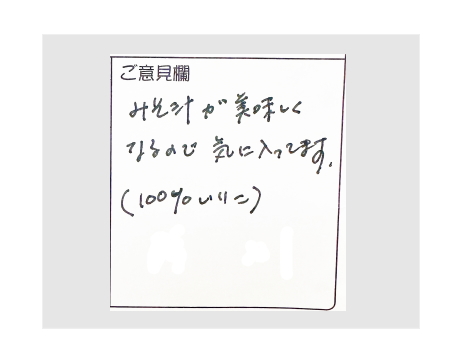 ご意見欄
みそ汁が美味しく
なるので気に入ってます。
(100%いりこ)